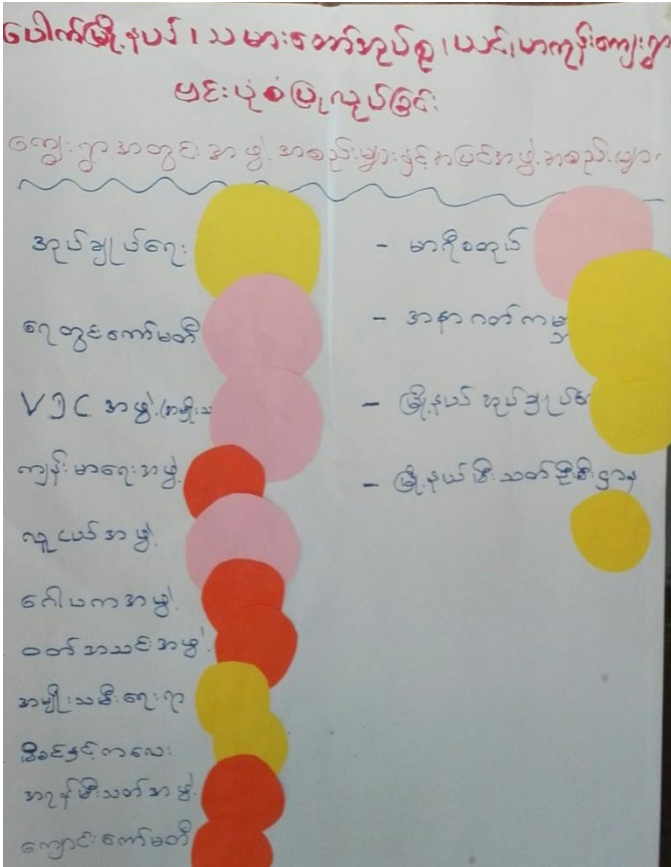 ပေါက်မြို့နယ်၊သမားတော်အုပ်စု၊ယင်းမာကုန်းကျေးရွာ
ဗင်းပုံစံပြုလုပ်ခြင်း
ကျေးရွာအတွင်းအဖွဲ့အစည်းများနှင့်အပြင်အဖွဲ့အစည်းများ
အုပ်ချုပ်ရေး
ရေတွင်းကော်မတီ
VDC အဖွဲ့
ကျန်းမာရေးအဖွဲ့
လူငယ်အဖွဲ့
ဂေါပကအဖွဲ့
ဝတ်အသင်းအဖွဲ့
အမျိုးသမီးရေးရာ
မိခင်နှင့်ကလေး
အရန်မီးသတ်အဖွဲ့
ကျောင်းကော်မတီ
- မာစီစတုပ်
- အနာဂတ်ကမ္ဘာ
- မြို့နယ်အုပ်ချုပ်ရေး
- မြို့နယ်မီးသတ်ဦးစီးဌာန